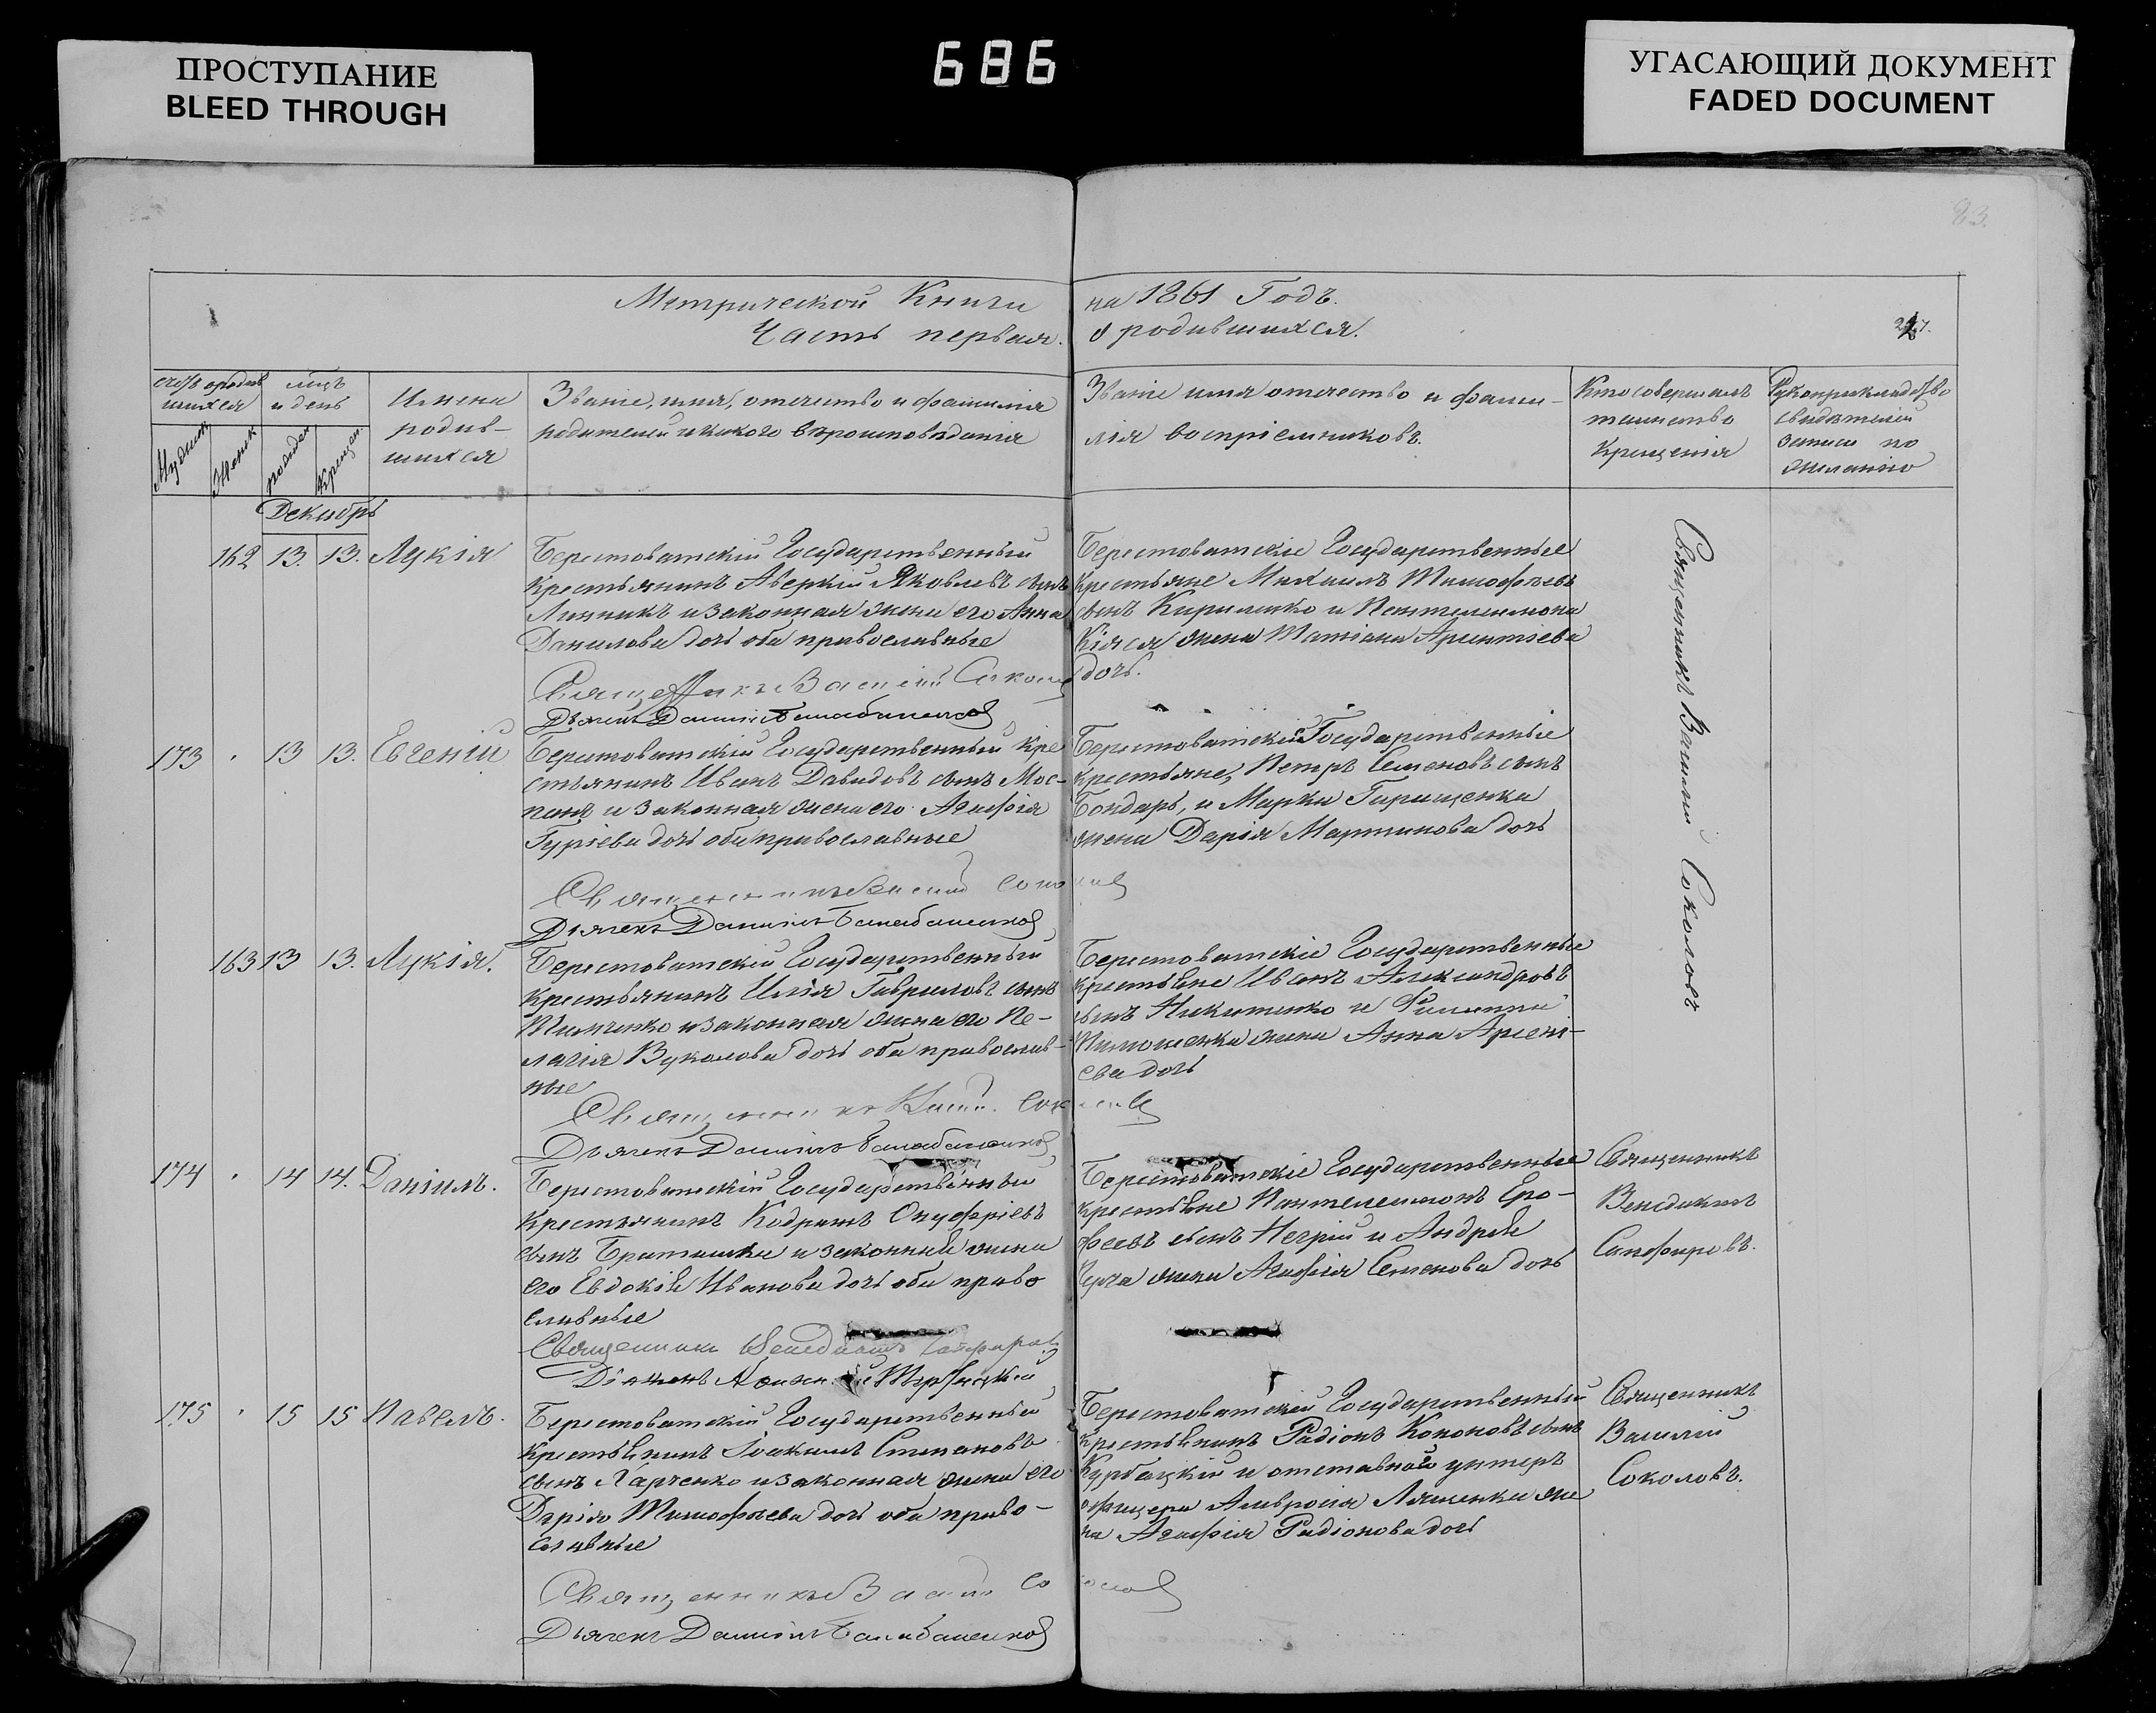 ПРОСТУПАНИЕ
BLEED THROUGH
686
УГАСАЮЩИЙ ДОКУМЕНТ
FADED DOCUMENT
83.
Метрической Книги на 1861 Годъ.
Часть первая. о родившихся.
счетъ родив
шихся
Мужеск
Женск
мѣсц
и день
рожден
крещен.
Имена
родив-
шихся
Званіе, имя, отчество и фамилія
родителей и какого вѣроисповѣданія
Званіе имя отчество и фами-
лія воспріемниковъ.
Кто совершалъ
таинство
Крещенія
Рукоприкладство
свидѣтелей
записи по
желанію
Декабрь
162 13. 13. Лукія
Берестоватскій Государственный
крестьянинъ Аверкій Яковлевъ сынъ
Линникъ и законная жена его Анна
Данилова дочь оба православные
Священникъ Василій Соколов
Дьячекъ Даниилъ
Берестоватскіе Государственные
крестьяне Михаилъ Тимофѣевъ
сынъ Кириленко и Пантелеимона
Кіяся жена Татіана Арентіева
дочь.
Священникъ Василій Соколовъ
173 13 13. Евгеній
Берестоватскій Государственный кре
стьянинъ Иванъ Давидовъ сынъ Мос-
панъ и законная жена его Агафія
Гуріева дочь оба православные
Священникъ Василий Соколов
Дьячекъ Даниилъ
Берестоватскій Государственные
крестьяне, Петръ Семеновъ сынъ
Бондарь, и Марка Гирищенка
жена Дарія Мартинова дочь
163 13 13. Лукія.
Берестоватскій Государственный
крестьянинъ Илія Гавриловъ сынъ
Тимченко и законная жена его Пе-
лагія Вуколова дочь оба православ-
ные
Священникъ Васил. Соколов
Дьячекъ Даниилъ
Берестоватскіе Государственные
крестьяне Иванъ Александровъ
сынъ Никитенко и Филиппа
Тимошенка жена Анна Арсені-
ева дочь
174 14 14. Даніилъ.
Берестоватскій Государственный
крестьянинъ Кодратъ Онуфріевъ
сынъ Браташка и законная жена
его Евдокія Иванова дочь оба право
славные
Священникъ Венедиктъ Сапфировъ
Дьяконъ
Берестоватскіе Государственные
крестьяне Пантелеимонъ Еро-
феевъ сынъ Негрій и Андрея
жена Агафія Семенова дочь
Священникъ
Венедиктъ
Сапфировъ.
175 15 15 Павелъ.
Берестоватскій Государственный
крестьянинъ Іоакимъ Степановъ
сынъ Харченко и законная жена его
Дарія Тимофѣева дочь оба право-
славные
Священникъ Василій Соколов
Дьячекъ Даниилъ
Берестоватскій Государственный
крестьянинъ Радіонъ Кононовъ сынъ
Курбацкій и отставнаго унтеръ
офицера Амвросія Ляшенка же
на Агафія Радіонова дочь
Священникъ
Василій
Соколовъ.